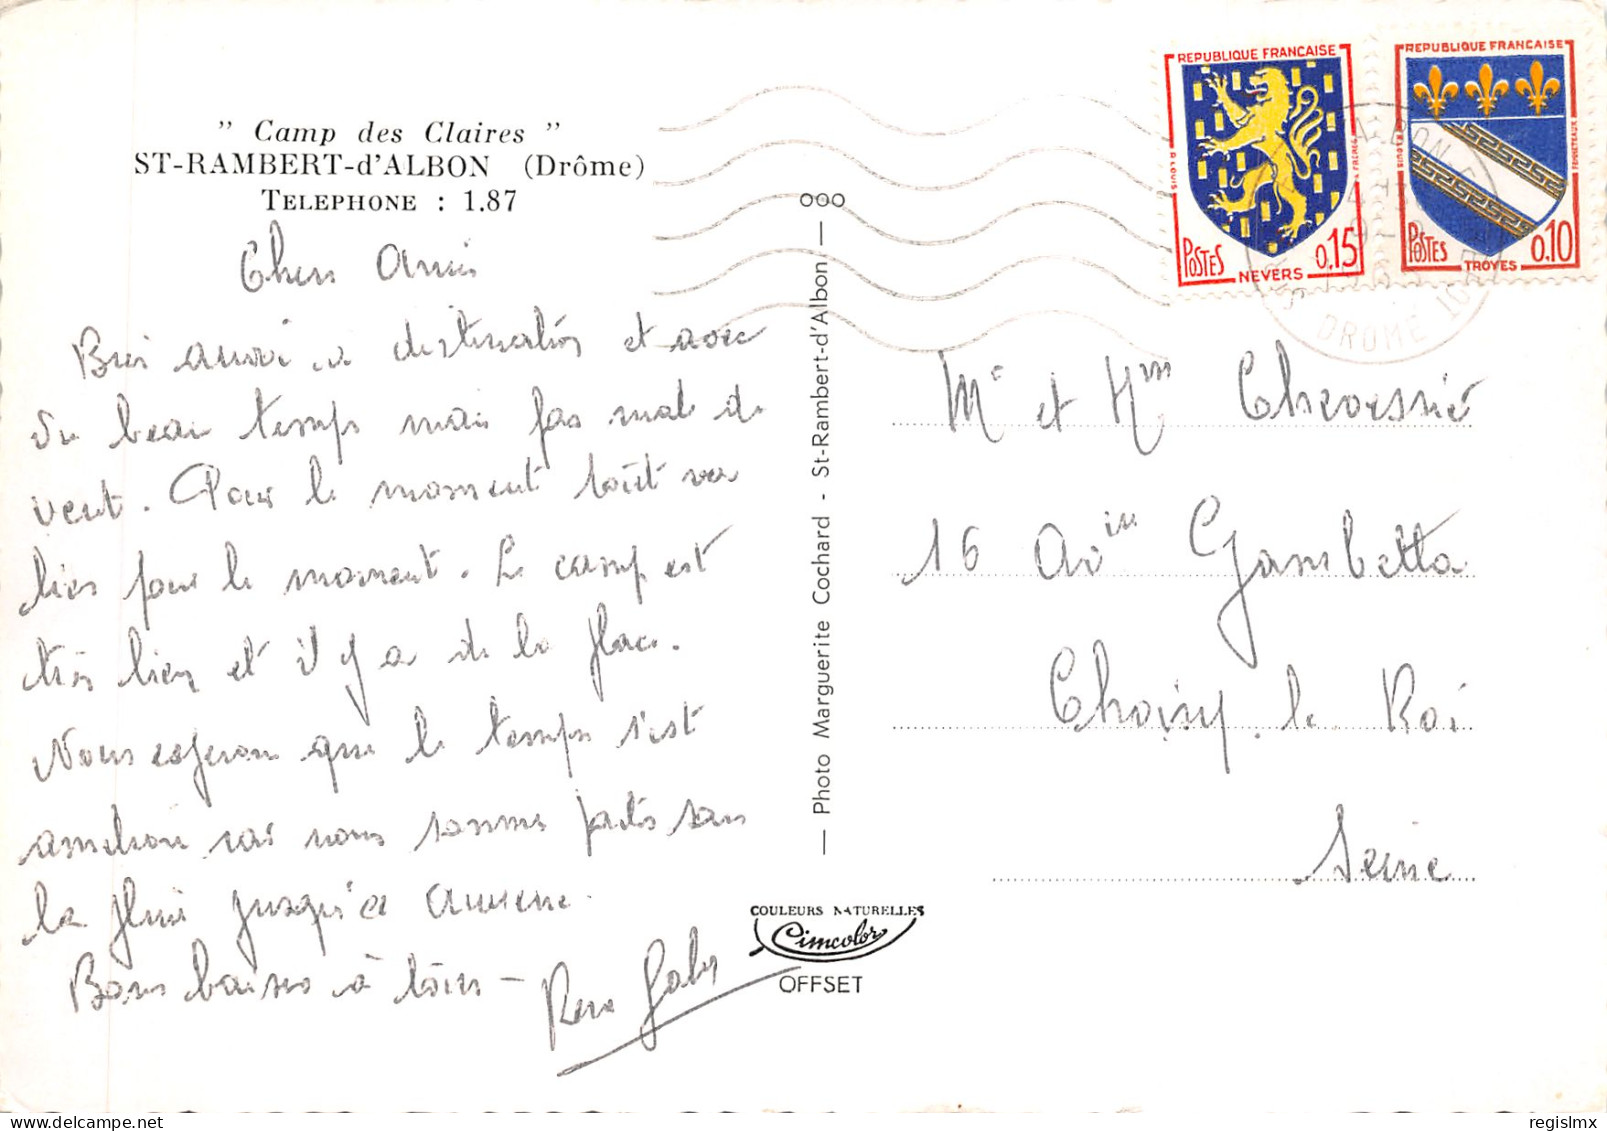 " Camp des Claires "
ST-RAMBERT-d'ALBON (Drôme)
TELEPHONE : 1.87
Chers Amis
Bien arrivé à destination et avec
du beau temps mais pas mal de
vent. Pour le moment tout va
bien pour le moment. Le camp est
très bien et il y a de la place.
Nous esperon que le temps s'est
amelioré car nous sommes partis sans
la pluie jusqu'à
Bons baisers à tous -
Gaby
— Photo Marguerite Cochard - St-Rambert-d'Albon —
COULEURS NATURELLES
Cimcolor
OFFSET
REPUBLIQUE FRANCAISE
POSTES
0.15
NEVERS
REPUBLIQUE FRANCAISE
POSTES
0.10
TROYES
DROME
Mr et Mme
16 Avue Gambetta
Choisy le Roi
Seine
regislmx